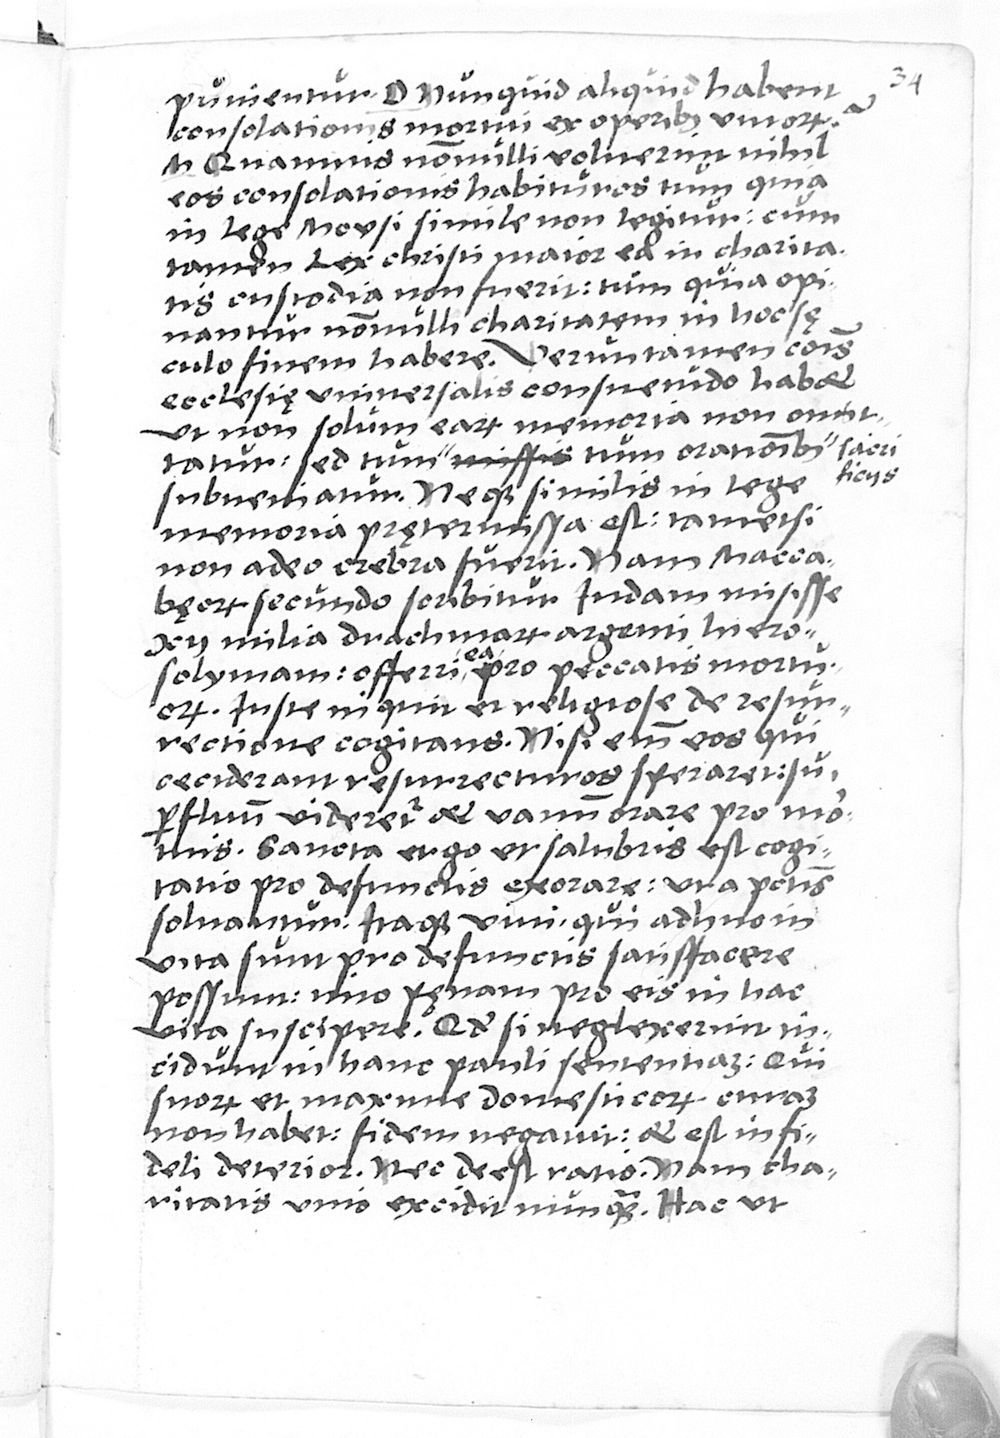 34
punientur. D Nunquid aliquid habent
consolationis mortui ex operibꝫ viuoꝝ.
M Quamuis nōnulli voluerint nihil
eos consolationis habituros tum quia
in lege Moysi simile non legitur: cum
tamen Lex christi maior ea in charita-
tis custodia non fuerit: tum quia opi-
nantur nōnulli charitatem in hoc sę
culo finem habere. Veruntamen cōis
ecclesię vniuersalis consuetudo habet
vt non solum eaꝝ memoria non omit-
tatur: sed tum missis tum orationibꝫ sacri
ficijs
subueniatur. Neqꝫ similis in lege
memoria prętermissa est: tametsi
non adeo crebra fuerit. Nam Macca-
bęoꝝ secundo scribitur Iudam misisse
xij milia drachmaꝝ argenti hiero-
solymam: offerri ea pro peccatis mortu-
oꝝ. Iuste inquit et religiose de resur-
rectione cogitans. Nisi em̄ eos qui
ceciderant resurrecturos speraret: su-
ꝑfluū videret̄ et vanū orare pro mor-
tuis. Sancta ergo et salubris est cogi-
tatio pro defunctis exorare: vt a pctīs
soluantur. Itaqꝫ viui qui adhuc in
vita sunt pro defunctis satisfacere
possunt: imo pęnam pro eis in hac
vita suscipere. Qd̄ si neglexerint in-
cidunt in hanc pauli sententiaꝫ: Qui
suoꝝ et maxime domesticoꝝ curaꝫ
non habet: fidem negauit: et est infi-
deli deterior. Nec deest ratio. Nam cha-
ritatis vnio excidit nunqꝫ. Hac vt